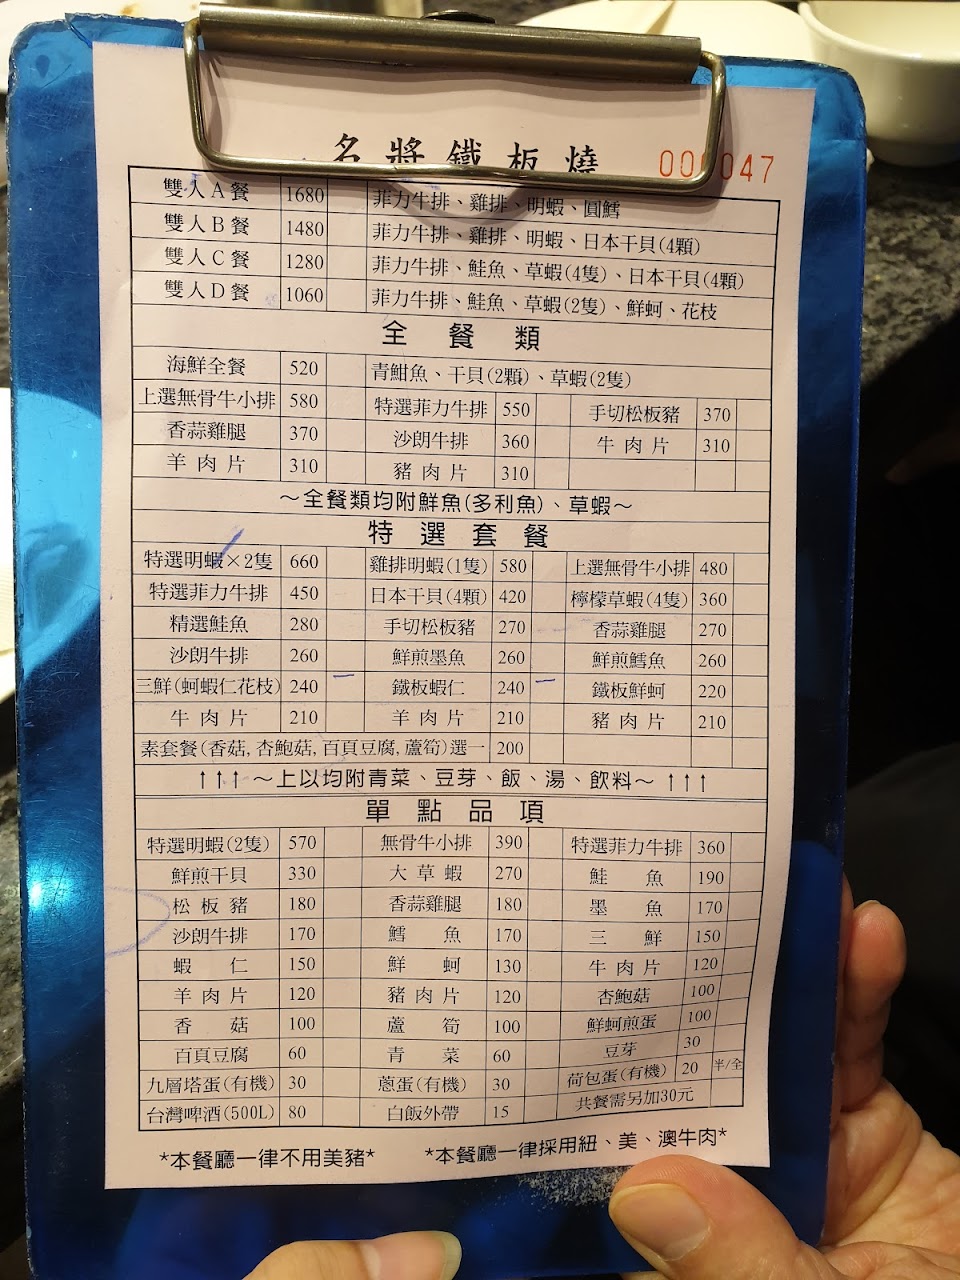 名將鐵板燒 000047
雙人A餐 1680 菲力牛排、雞排、明蝦、圓鱈
雙人B餐 1480 菲力牛排、雞排、明蝦、日本干貝(4顆)
雙人C餐 1280 菲力牛排、鮭魚、草蝦(4隻)、日本干貝(4顆)
雙人D餐 1060 菲力牛排、鮭魚、草蝦(2隻)、鮮蚵、花枝
全餐類
海鮮全餐 520 青魽魚、干貝(2顆)、草蝦(2隻)
上選無骨牛小排 580 特選菲力牛排 550 手切松板豬 370
香蒜雞腿 370 沙朗牛排 360 牛肉片 310
羊肉片 310 豬肉片 310
～全餐類均附鮮魚(多利魚)、草蝦～
特選套餐
特選明蝦×2隻 660 雞排明蝦(1隻) 580 上選無骨牛小排 480
特選菲力牛排 450 日本干貝(4顆) 420 檸檬草蝦(4隻) 360
精選鮭魚 280 手切松板豬 270 香蒜雞腿 270
沙朗牛排 260 鮮煎墨魚 260 鮮煎鱈魚 260
三鮮(蚵蝦仁花枝) 240 鐵板蝦仁 240 鐵板鮮蚵 220
牛肉片 210 羊肉片 210 豬肉片 210
素套餐(香菇, 杏鮑菇, 百頁豆腐, 蘆筍)選一 200
↑↑↑～上以均附青菜、豆芽、飯、湯、飲料～↑↑↑
單點品項
特選明蝦(2隻) 570 無骨牛小排 390 特選菲力牛排 360
鮮煎干貝 330 大草蝦 270 鮭魚 190
松板豬 180 香蒜雞腿 180 墨魚 170
沙朗牛排 170 鱈魚 170 三鮮 150
蝦仁 150 鮮蚵 130 牛肉片 120
羊肉片 120 豬肉片 120 杏鮑菇 100
香菇 100 蘆筍 100 鮮蚵煎蛋 100
百頁豆腐 60 青菜 60 豆芽 30
九層塔蛋(有機) 30 蔥蛋(有機) 30 荷包蛋(有機) 20 半/全
台灣啤酒(500L) 80 白飯外帶 15 共餐需另加30元
*本餐廳一律不用美豬* *本餐廳一律採用紐、美、澳牛肉*